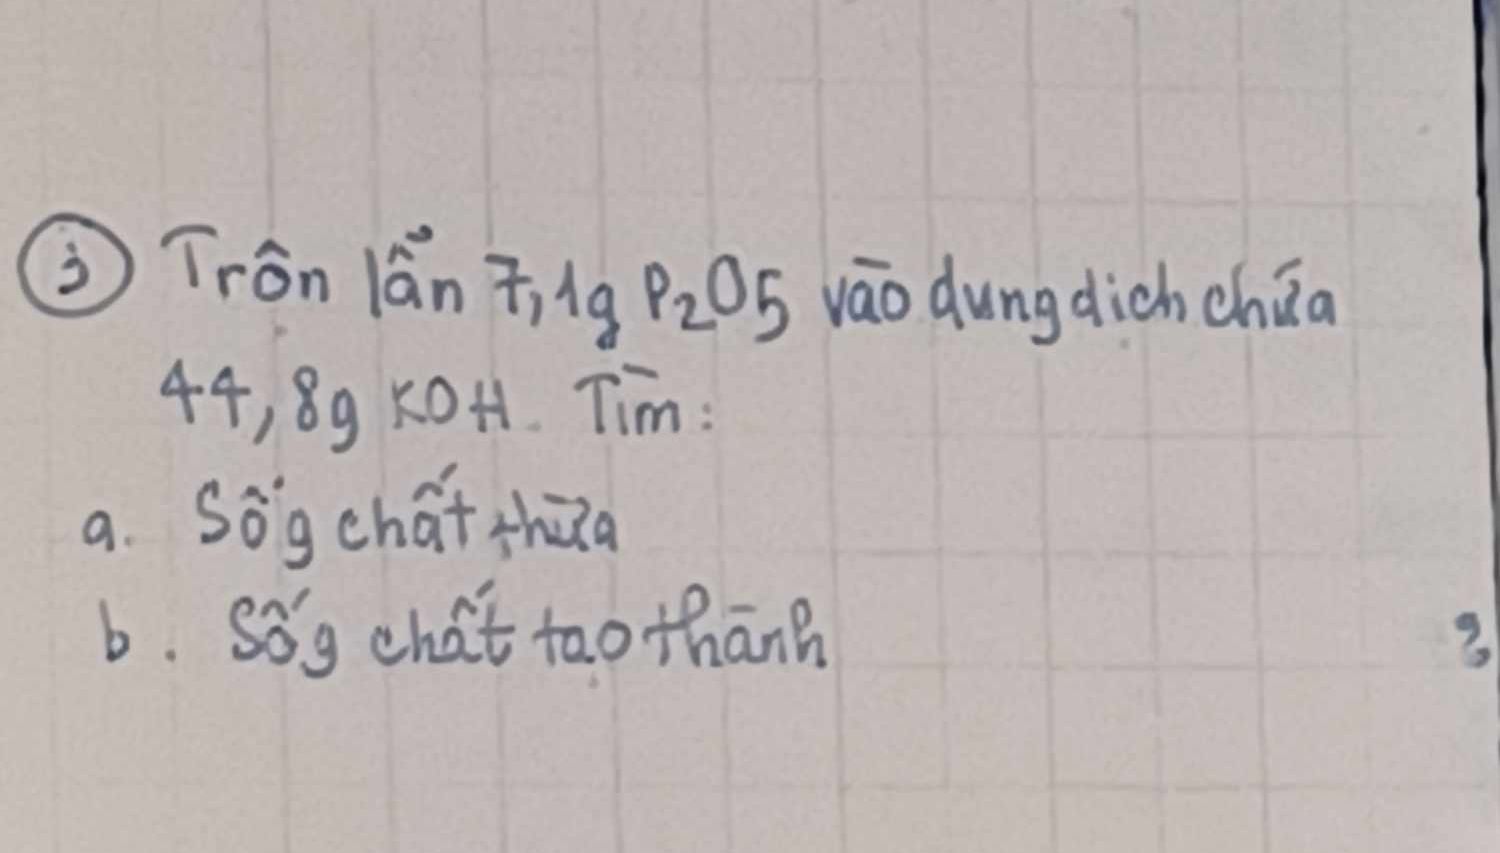 ③ Trộn lẫn 7,1g P2O5 vào dung dịch chứa
44,8g KOH. Tìm:
a. Số g chất thừa
b. Số g chất tạo thành